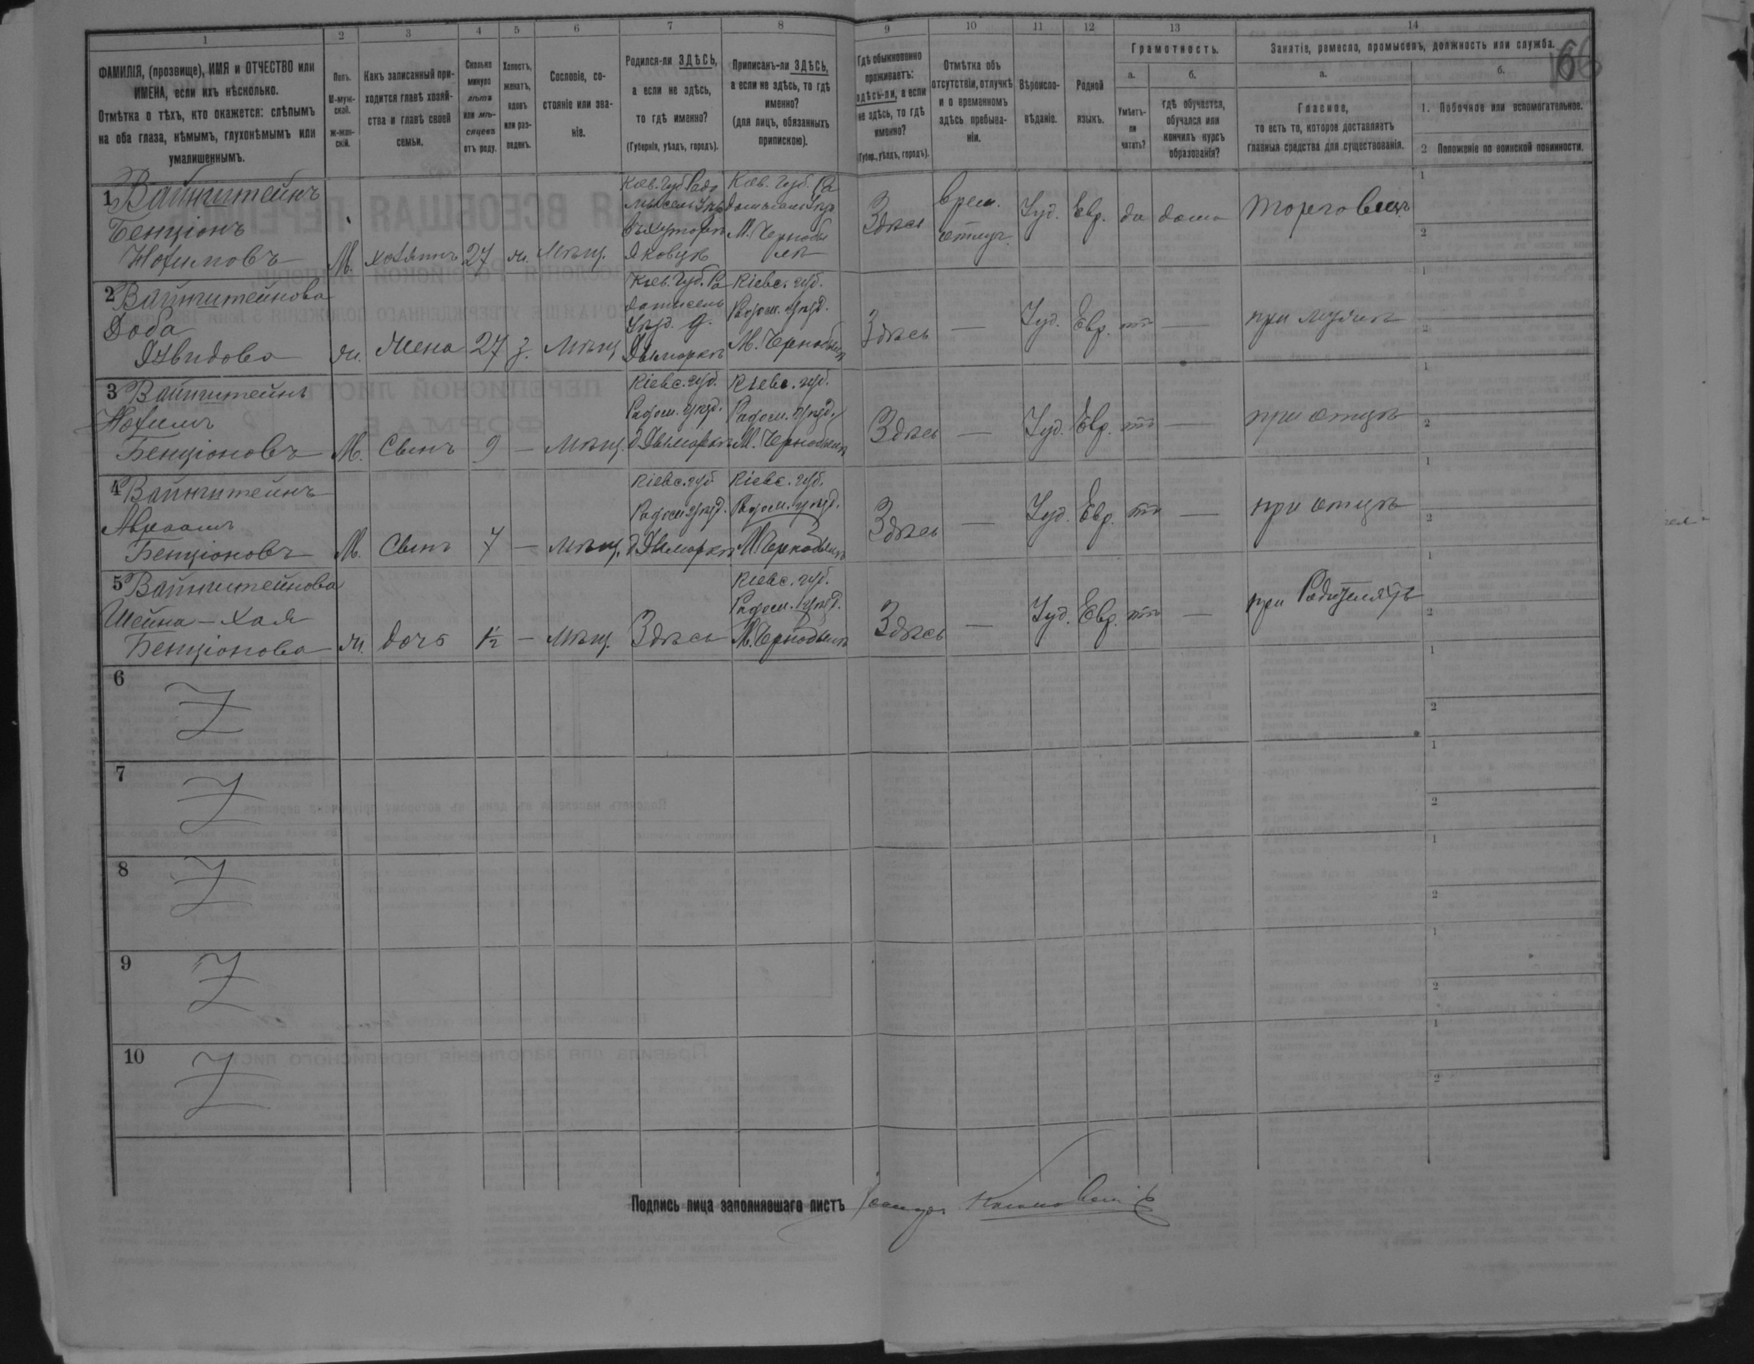 1 2 3 4 5 6 7 8 9 10 11 12 13 14
ФАМИЛІЯ, (прозвище), ИМЯ и ОТЧЕСТВО или
ИМЕНА, если ихъ нѣсколько.
Отмѣтка о тѣхъ, кто окажется: слѣпымъ
на оба глаза, нѣмымъ, глухонѣмымъ или
умалишеннымъ.
Полъ.
М-муж-
ской.
Ж-жен-
скій.
Какъ записанный при-
ходится главѣ хозяй-
ства и главѣ своей
семьи.
Сколько
минуло
лѣтъ
или мѣ-
сяцевъ
отъ роду.
Холостъ,
женатъ,
вдовъ
или раз-
веденъ.
Сословіе, со-
стояніе или зва-
ніе.
Родился-ли ЗДѢСЬ,
а если не здѣсь,
то гдѣ именно?
(Губернія, уѣздъ, городъ).
Приписанъ-ли ЗДѢСЬ,
а если не здѣсь, то гдѣ
именно?
(для лицъ, обязанныхъ
припискою).
Гдѣ обыкновенно
проживаетъ:
здѣсь-ли, а если
не здѣсь, то гдѣ
именно?
(Губер., уѣздъ, городъ).
Отмѣтка объ
отсутствіи, отлучкѣ
и о временномъ
здѣсь пребыва-
ніи.
Вѣроиспо-
вѣданіе.
Родной
языкъ.
Грамотность.
а.
Умѣетъ-
ли
читать?
б.
гдѣ обучается,
обучался или
кончилъ курсъ
образованія?
Занятіе, ремесло, промыселъ, должность или служба.
а.
Главное,
то есть то, которое доставляетъ
главныя средства для существованія.
б.
1. Побочное или вспомогательное.
2 Положеніе по воинской повинности.
1 Вайнштейнъ
Бенціонъ
Нохимовъ
М. хозяинъ 27 ж. Мѣщ.
Кіев. Губ. Радо
мысель Уѣзд
Яковцѣ
Кіев. Губ. Ра
домысель Уѣзд
М. Чернобы
лѣ
Здѣсь
врем.
отлуч.
Іуд. Евр. да дома торговецъ
1
2
2 Вайнштейнова
Доба
Давидова
ж. жена 27 з. Мѣщ
Кіев. Губ. Ра
домысель
Уѣзд. д.
Дымаркѣ
Кіевс. губ.
Радом. уѣзд.
М. Чернобылѣ
Здѣсь — Іуд. Евр. нѣтъ — при мужѣ
1
2
3 Вайнштейнъ
Нохимъ
Бенціоновъ
М. Сынъ 9 — Мѣщ.
Кіевс. губ.
Радом. уѣзд.
д Дымаркѣ
Кіевс. губ.
Радом. уѣзд.
М. Чернобылѣ
Здѣсь — Іуд. Евр. нѣтъ — при отцѣ
1
2
4 Вайнштейнъ
Авраамъ
Бенціоновъ
М. Сынъ 7 — Мѣщ.
Кіевс. губ
Радом. уѣзд.
д Дымаркѣ
Кіевс. губ.
Радом. уѣзд.
М Чернобылѣ
Здѣсь — Іуд. Евр. нѣтъ — при отцѣ
1
2
5 Вайнштейнова
Шейна - Хая
Бенціонова
ж. дочь ½ — Мѣщ. Здѣсь
Кіевс. губ.
Радом. уѣзд.
М. Чернобылѣ
Здѣсь — Іуд. Евр. нѣтъ — при Родителяхъ
1
2
6
1
2
7
1
2
8
1
2
9
1
2
10
1
2
Подпись лица заполнявшаго листъ